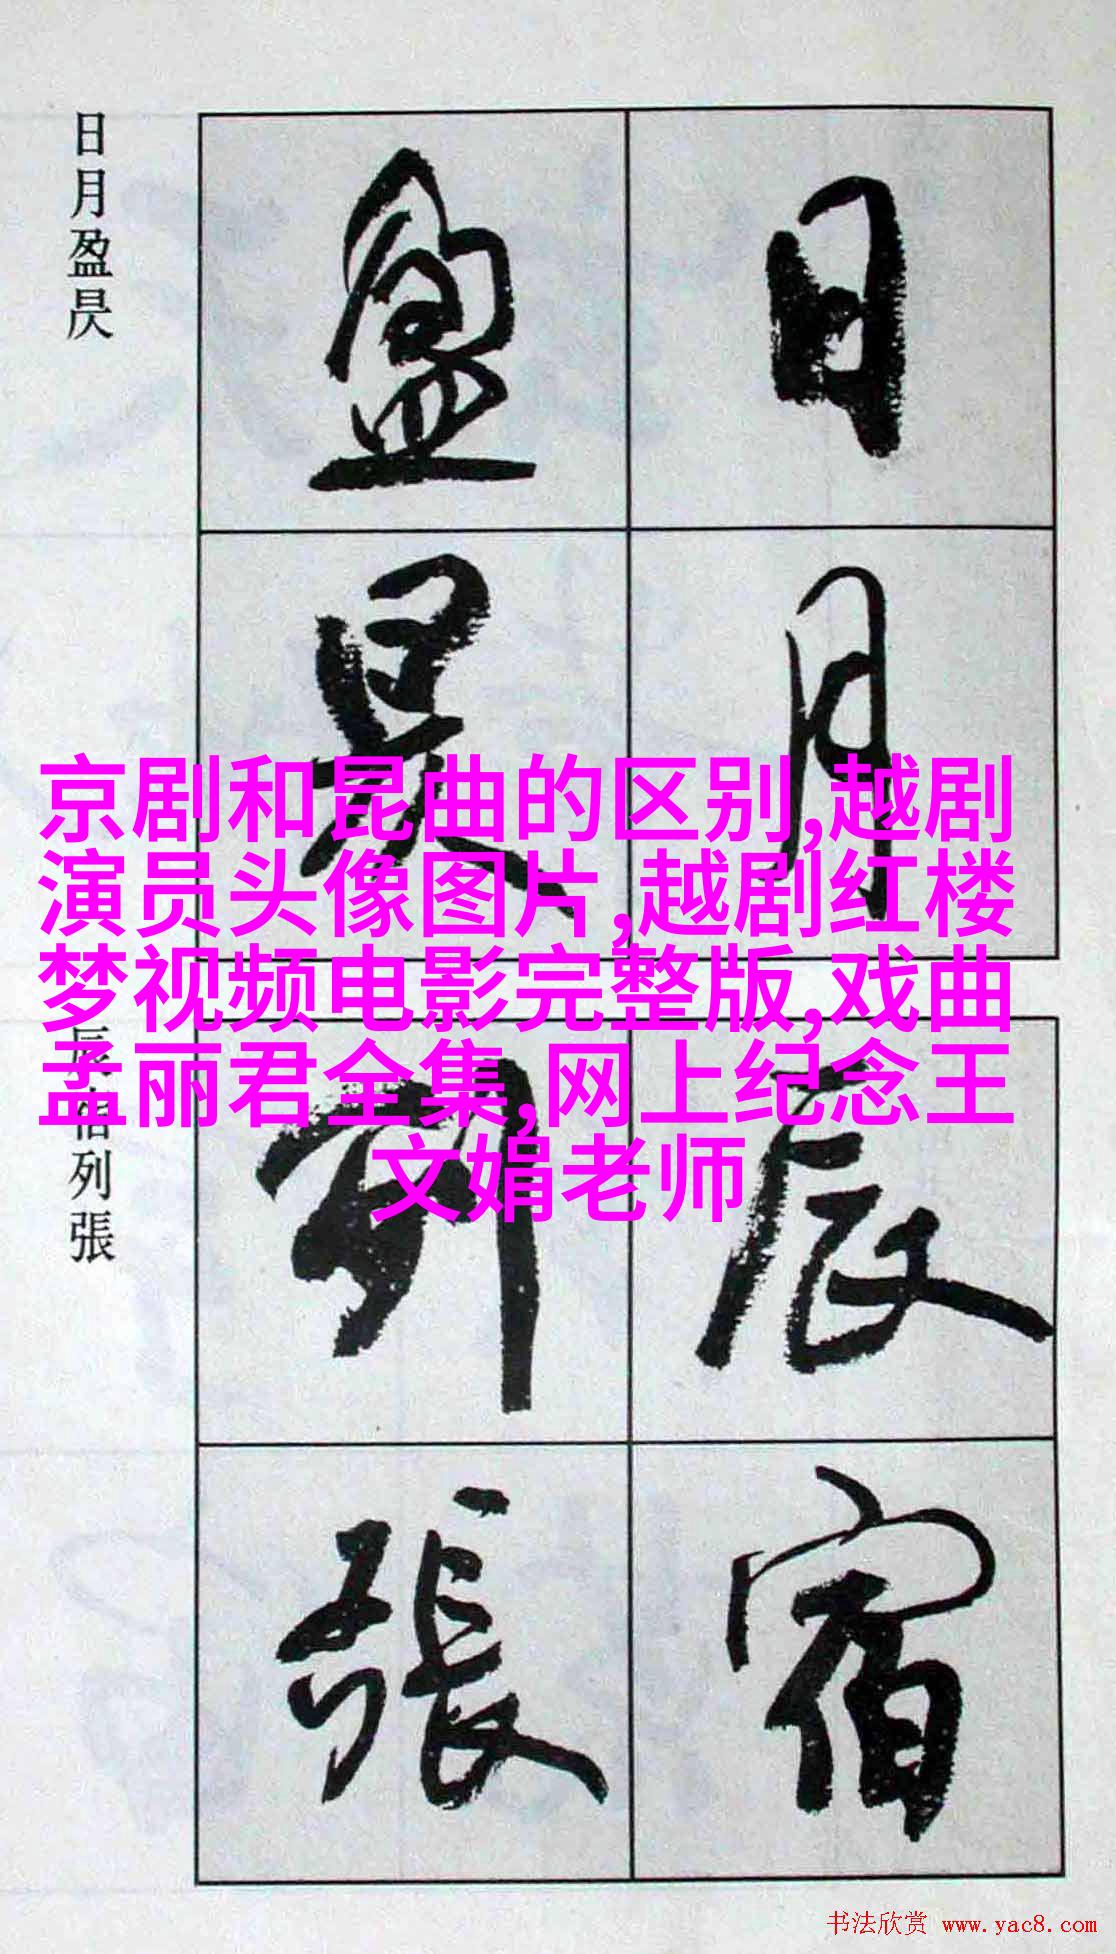 日月盈昃
日
月
盈
昃
京剧和昆曲的区别,越剧
演员头像图片,越剧红楼
梦视频电影完整版,戏曲
孟丽君全集,网上纪念王
文娟老师
辰宿列張
辰
宿
列
張
书法欣赏 www.yac8.com